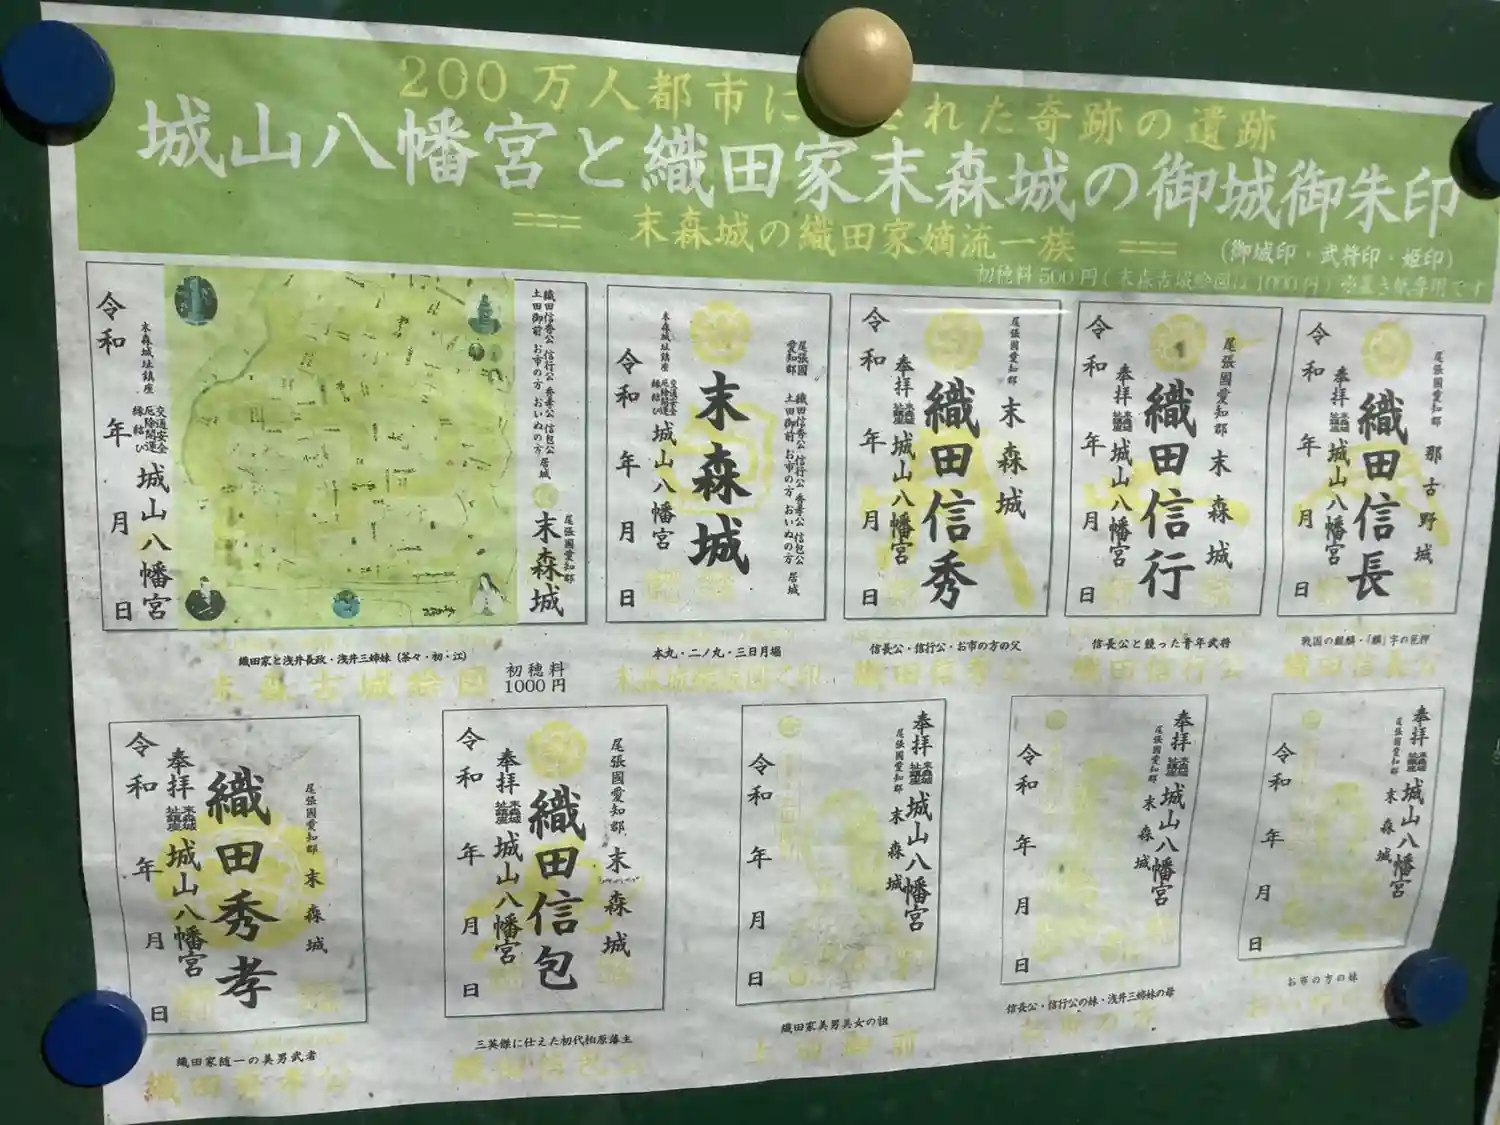 200万人都市に された奇跡の遺跡
城山八幡宮と織田家末森城の御城御朱印
=== 末森城の織田家嫡流一族 ===
(御城印・武将印・姫印)
初穂料500円(末森古城絵図は1000円)※置き紙専用です
令和 年 月 日
末森城址鎮座
交通安全
厄除開運
縁結び
城山八幡宮
織田信秀公 信行公 秀孝公 信包公 居城
土田御前 お市の方 おいぬの方
尾張國愛知郡
末森城
織田家と浅井長政・浅井三姉妹(茶々・初・江)
末森古城絵図
初穂料
1000円
尾張國
愛知郡
織田信秀公 信行公 秀孝公 信包公 居城
土田御前 お市の方 おいぬの方
末森城
末森城址鎮座
交通安全
厄除開運
縁結び
城山八幡宮
令和 年 月 日
本丸・二ノ丸・三日月堀
尾張國愛知郡
末森城
織田信秀
奉拝 末森城址鎮座 城山八幡宮
令和 年 月 日
信長公・信行公・お市の方の父
織田信秀公
尾張國愛知郡
末森城
織田信行
奉拝 末森城址鎮座 城山八幡宮
令和 年 月 日
信長公と競った青年武将
織田信行公
尾張國愛知郡
那古野城
織田信長
奉拝 末森城址鎮座 城山八幡宮
令和 年 月 日
戦国の麒麟・「麟」字の花押
織田信長公
尾張國愛知郡
末森城
織田秀孝
奉拝 末森城址鎮座 城山八幡宮
令和 年 月 日
織田家随一の美男武者
織田秀孝公
尾張國愛知郡
末森城
織田信包
奉拝 末森城址鎮座 城山八幡宮
令和 年 月 日
三英傑に仕えた初代柏原藩主
織田信包公
奉拝 末森城址鎮座 城山八幡宮
尾張國愛知郡
末森城
令和 年 月 日
織田家美男美女の祖
土田御前
奉拝 末森城址鎮座 城山八幡宮
尾張國愛知郡
末森城
令和 年 月 日
信長公・信行公の妹・浅井三姉妹の母
お市の方
奉拝 末森城址鎮座 城山八幡宮
尾張國愛知郡
末森城
令和 年 月 日
お市の方の妹